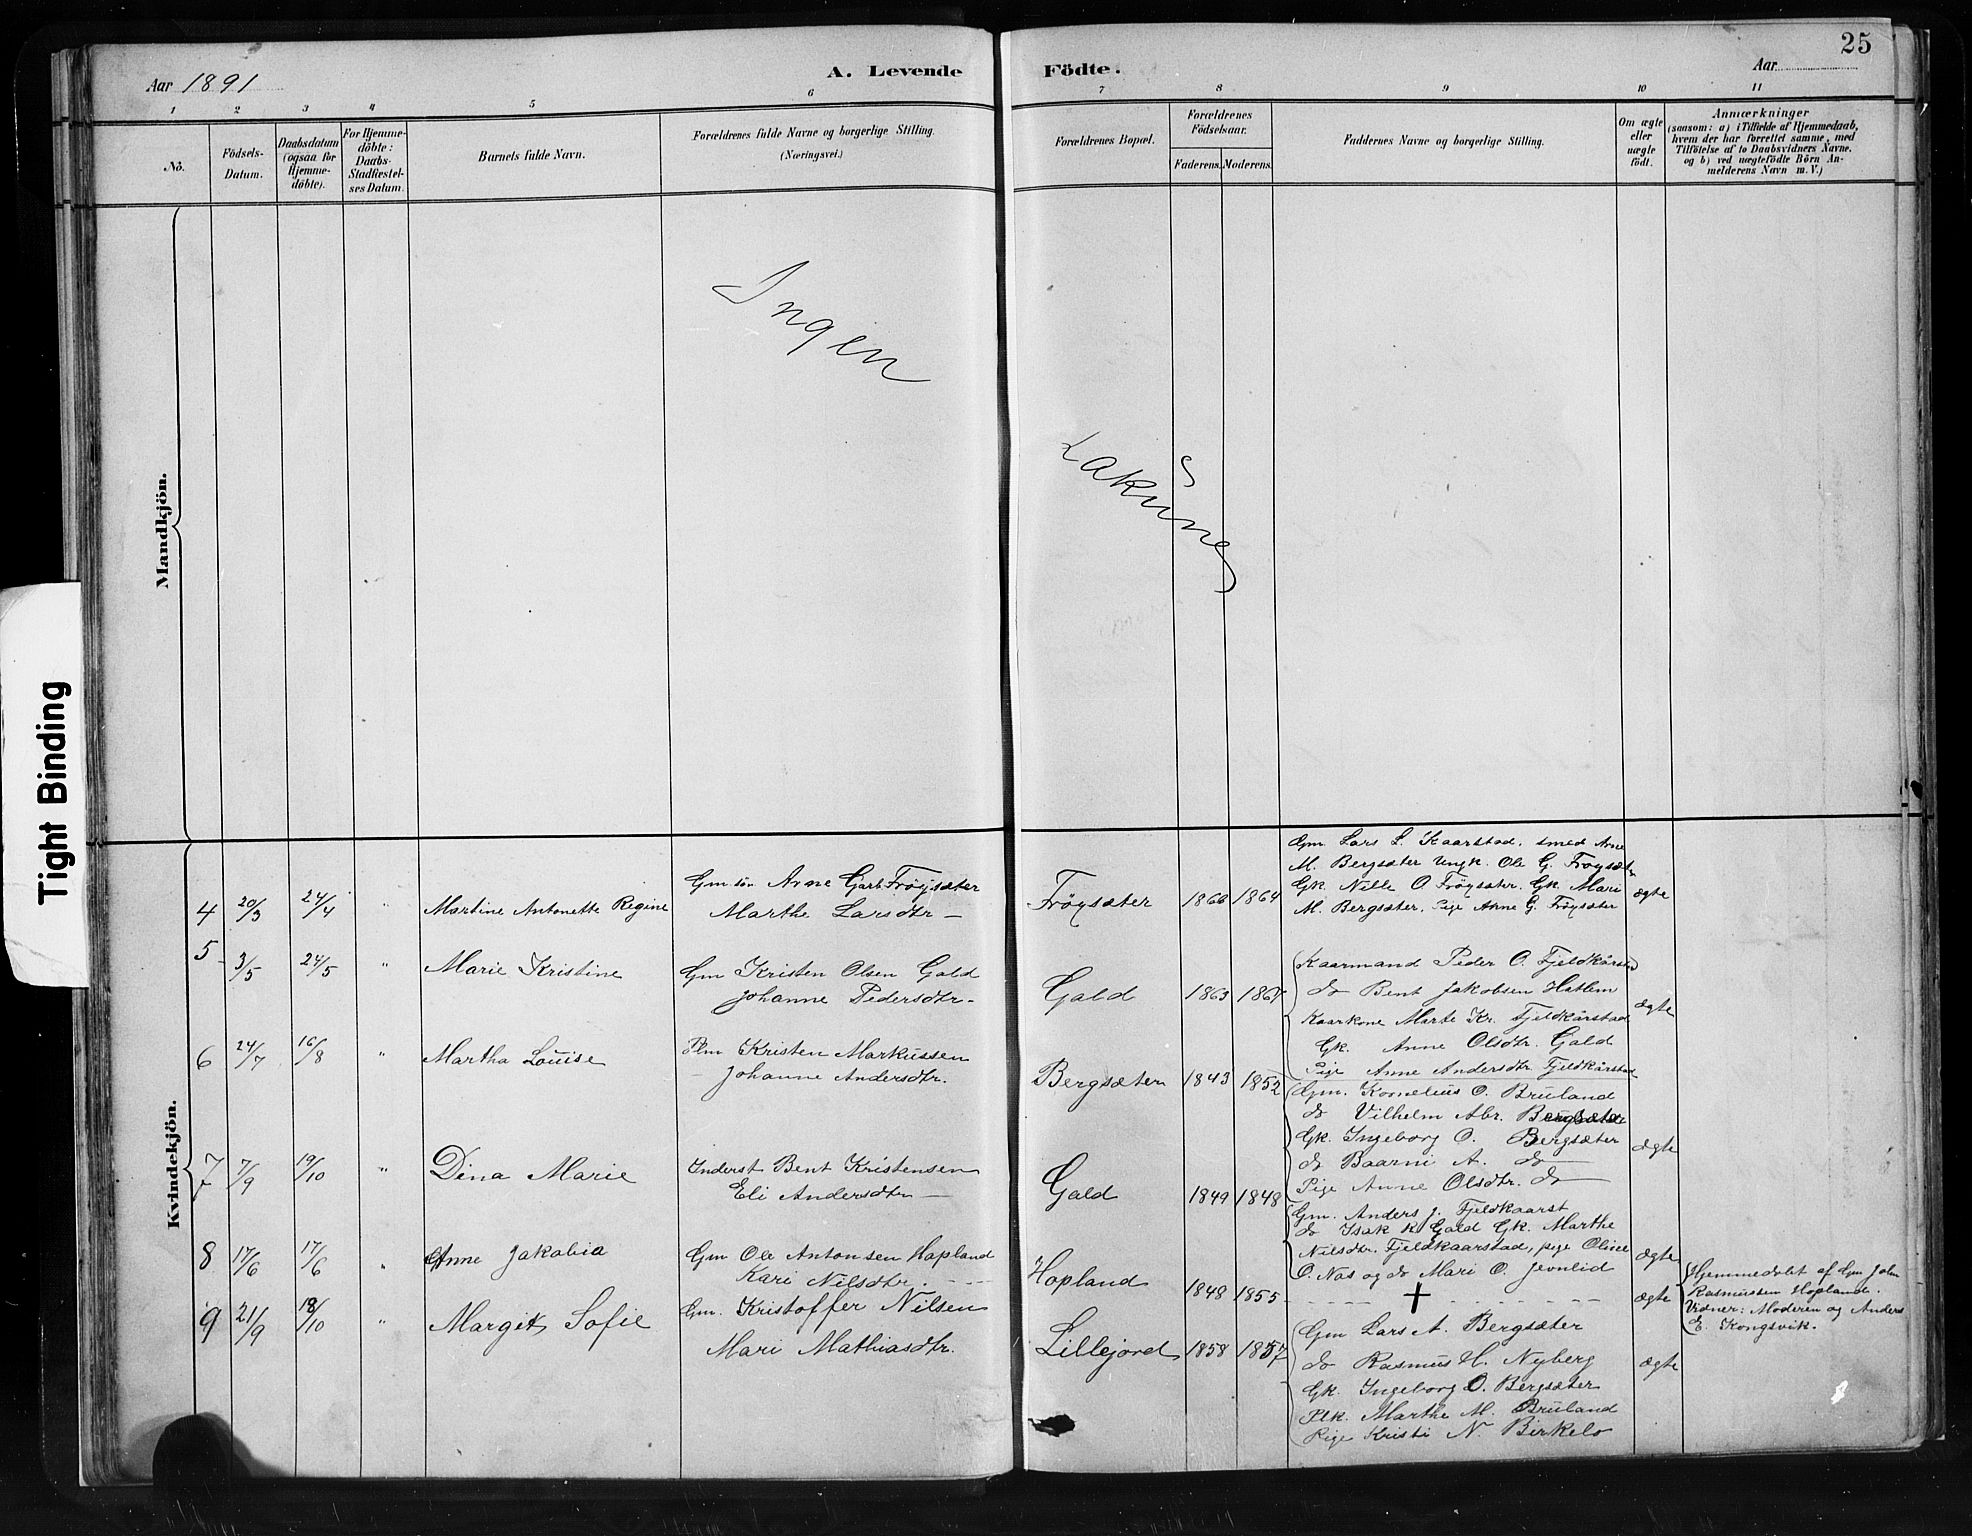 25
Aar 1891
A. Levende Födte.
Aar
1 2 3 4 5 6 7 8 9 10 11
No.
Födsels-Datum.
Daabsdatum (ogsaa for Hjemme-döbte).
For Hjemme-döbte: Daabs-Stadfestel-ses Datum.
Barnets fulde Navn.
Forældrenes fulde Navne og borgerlige Stilling. (Næringsvei.)
Forældrenes Bopæl.
Forældrenes Födselsaar.
Faderens. Moderens.
Faddernes Navne og borgerlige Stilling.
Om ægte eller uægte födt.
Anmærkninger
(saasom: a) i Tilfælde af Hjemmedaab,
hvem der har forrettet samme, med
Tilföielse af to Daabsvidners Navne,
og b) ved uægtefödte Börn An-
melderens Navn m. V.)
Mandkjön.
Ingen
Lakune
Tight Binding
Kvindekjön.
4 20/3 24/4 " Martine Antonette Regine
Gm sön Arne Garb. Fröysæter
Marthe Larsdtr —
Fröysæter 1866 1864
Gm. Lars L. Kaarstad, smed Arne
M. Bergsæter Ungk. Ole G. Frøysæter
Gk. Nille O. Fröysæter. Gk. Mari
M. Bergsæter, Pige Anne G. Fröysæter
ægte
5 3/5 24/5 " Marie Kristine
Gm Kristen Olsen Gald
Johanne Pedersdtr-
Gald 1863 1867
Kaarmand Peder O. Fjeldkårstad
do Bent Jakobsen Hatlem
Kaarkone Marte Kr. Fjeldkårstad
Gk. Anne Olsdtr. Gald
Pige Anne Andersdtr Fjeldkårstad
ægte
6 24/7 16/8 " Martha Louise
Plm Kristen Markussen
Johanne Andersdtr.
Bergsæter 1843 1852
Gm. Kornelius O. Bruland
do Vilhelm Abr. Bergsæter
Gk. Ingeborg O. Bergsæter
do Baarni A. do
Pige Anne Olsdtr. do
ægte
7 7/9 19/10 " Dina Marie
Inderst Bent Kristensen
Eli Andersdtr —
Gald 1849 1848
Gm. Anders J. Fjeldkaarst
do Isak K Gald Gk. Marthe
Nilsdtr. Fjeldkaarstad, pige Oline
O. Nas og do Mari O. Jevnlid
ægte
8 17/6 17/6 " Anne Jakobia
Gm Ole Antonsen Hopland
Kari Nilsdtr.
Hopland 1848 1855
ægte
Hjemmedøbt af Gm John
Rasmussen Hopland.
Vidner: Moderen og Anders
E. Kongsvik.
9 21/9 18/10 " Margit Sofie
Gm. Kristoffer Nilsen
Mari Mathiasdtr.
Lillejord 1858 1857
Gm Lars A. Bergsæter
do Rasmus H. Nyberg
Gk. Ingeborg O. Bergsæter
Plk. Marthe M. Bruland
Pige Kristi N. Birkelo
ægte